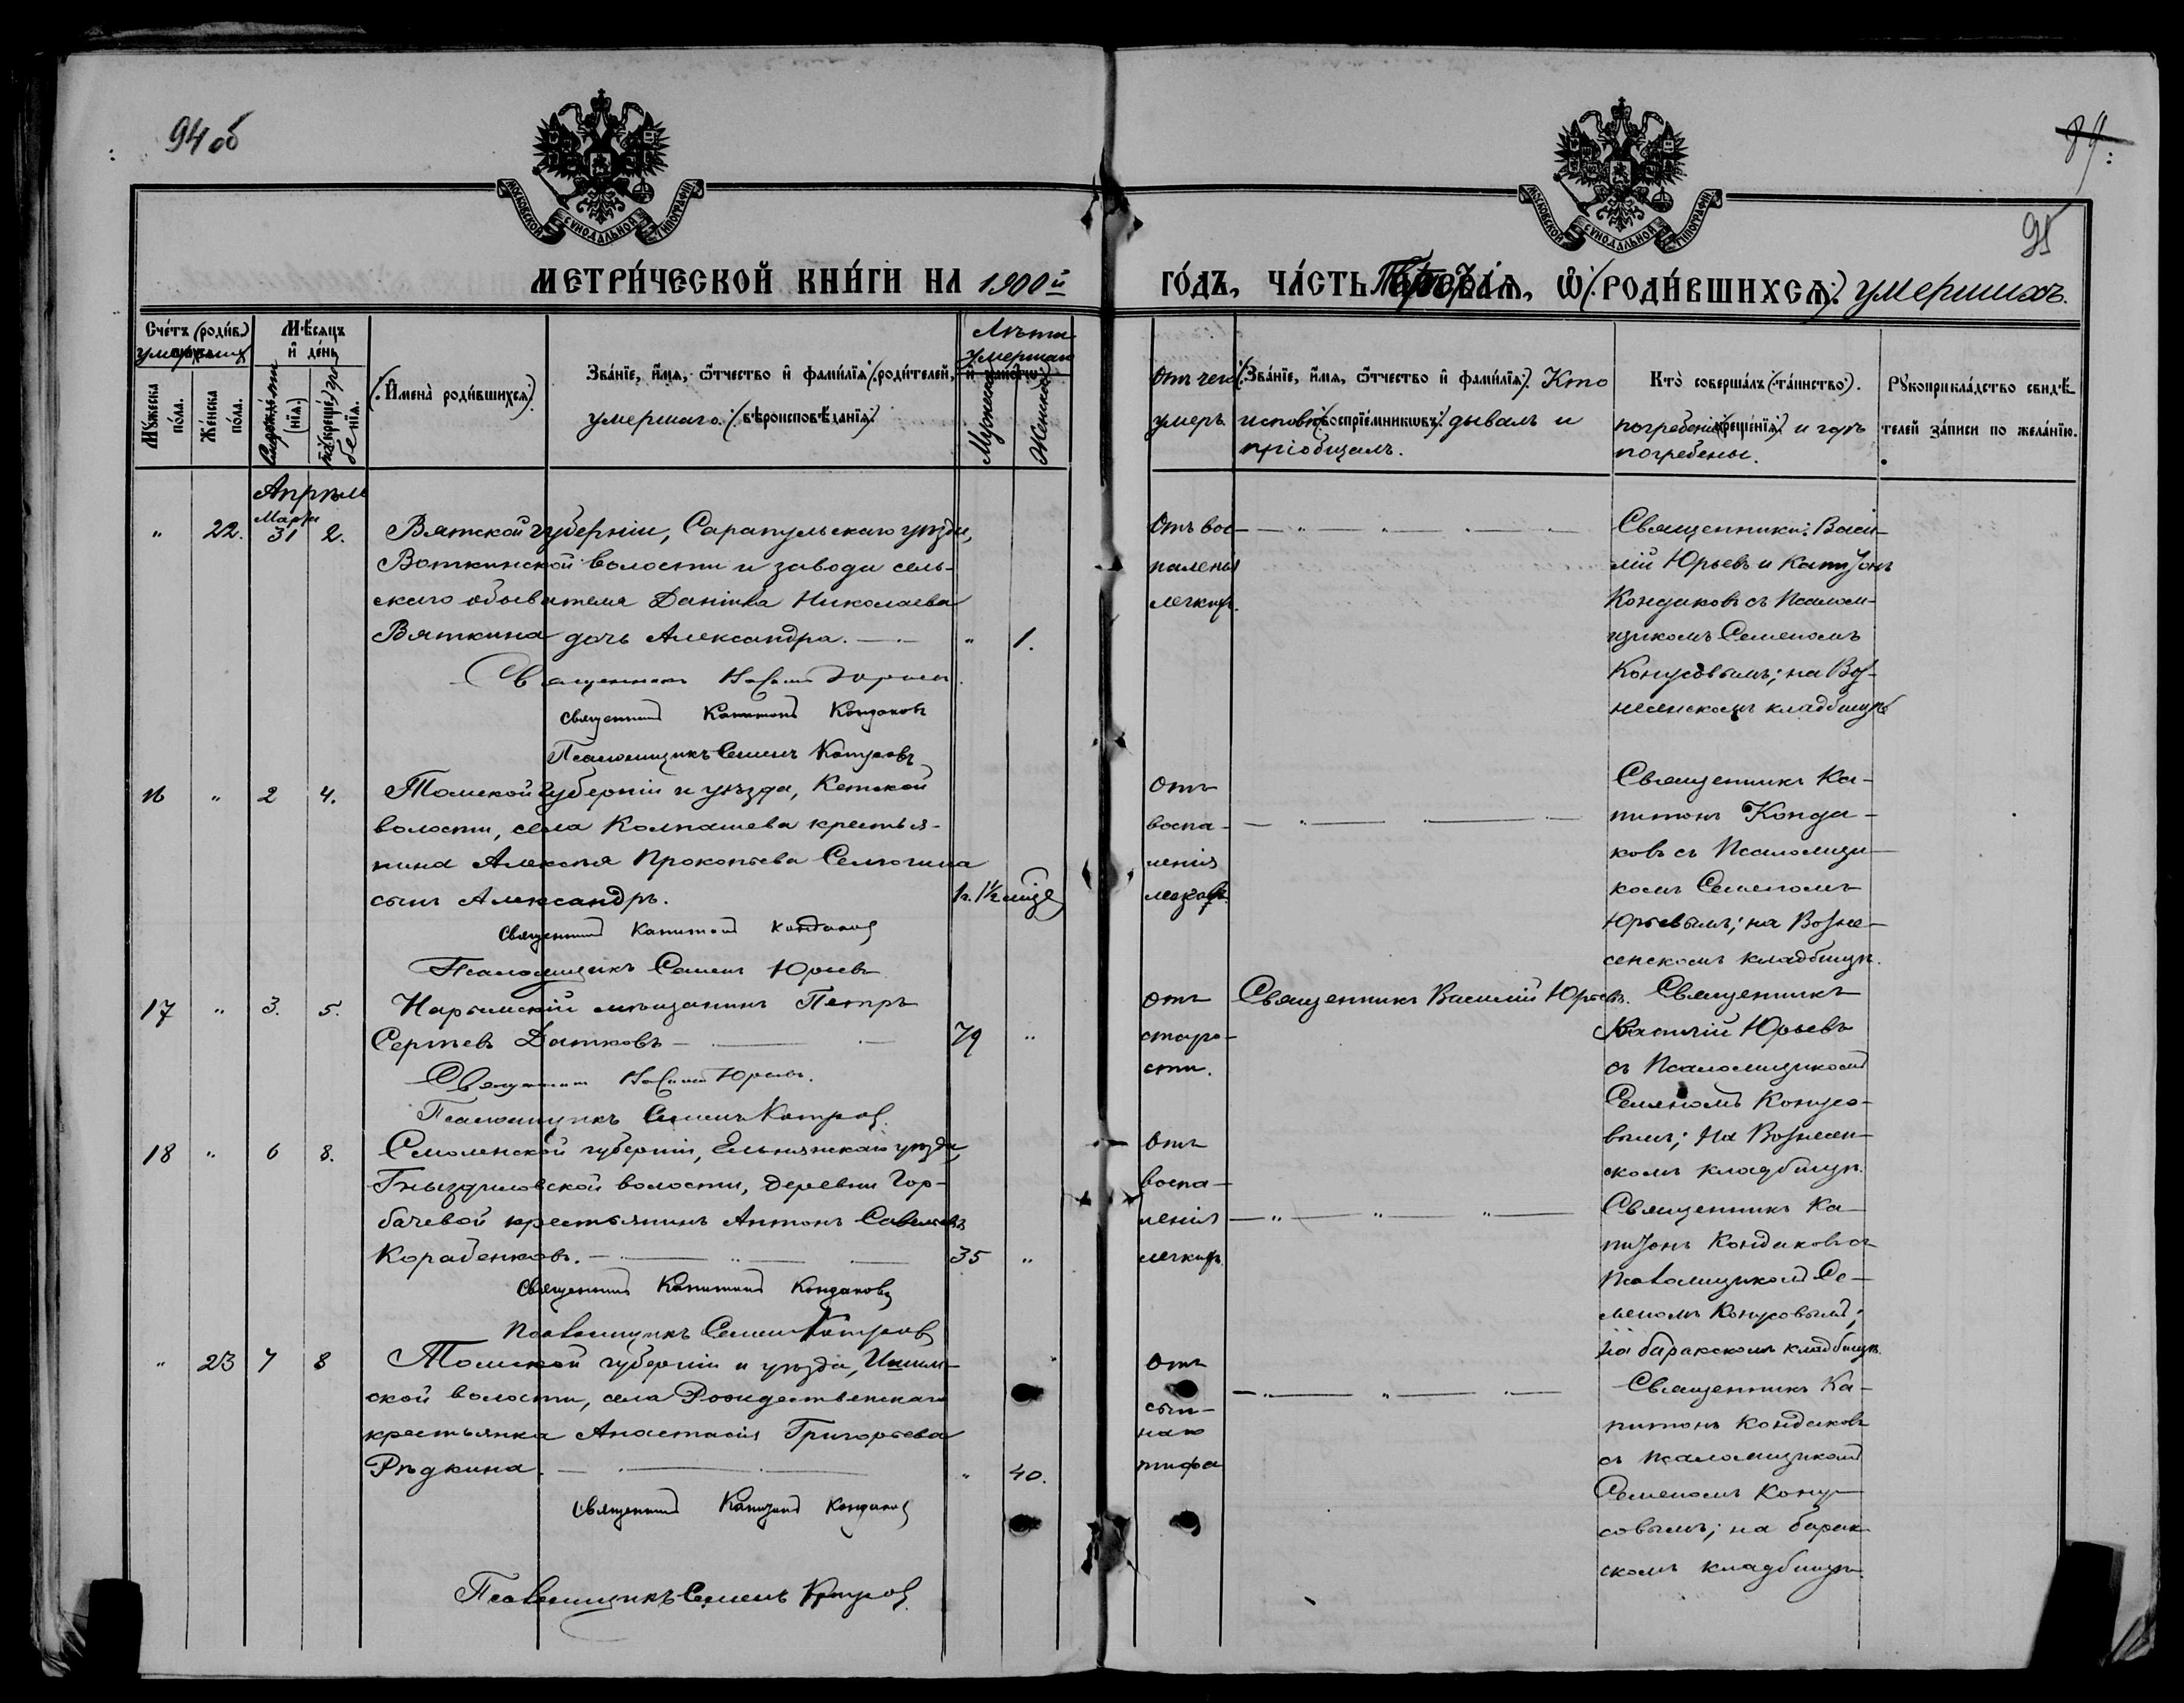 94 об
89
95
МОСКОВСКОЙ СѴНОДАЛЬНОЙ ТИПОГРАФІИ
МОСКОВСКОЙ СѴНОДАЛЬНОЙ ТИПОГРАФІИ
МЕТРИ́ЧЕСКОЙ КНИ́ГИ НА 1900й
ГО́ДЪ, ЧА́СТЬ Третья, Ѡ (РОДИ́ВШИХСЯ) умершихъ.
Сче́тъ (роди́в) умершихъ
М́ꙋжеска по́ла.
Же́нска по́ла.
Мѣ́сяцъ и де́нь
(Имена̀ роди́вшихся)
Зва́нїе, и́мя, ѻ́тчество и фами́лїя (роди́телей,
умершаго. (вѣроисповѣ́данїя)
Лѣта умершаго
Мужескаго
Женскаго
Отъ чего умеръ
(Зва́нїе, и́мя, ѻ́тчество и фами́лїя) Кто
исповѣ (воспрїе́мникѡвъ) дывалъ и
пріобщалъ.
Кто̀ соверша́лъ (та́инство).
погребеніе (креще́нїя) и гдѣ
погребены.
Рꙋкоприкла́дство свидѣ́телей за́писи по жела́нїю.
Апрѣль
" 22. Марта 31 2.
Вятской губерніи, Сарапульскаго уѣзда,
Воткинской волости и завода сель-
скаго обывателя Даніила Николаева
Вяткина дочь Александра. " 1.
Священникъ Василій Юрьевъ.
Священникъ Капитонъ Кондаковъ
Псаломщикъ Семенъ
Отъ вос-
паленія
легкихъ.
Священники: Васи-
лій Юрьевъ и Капитонъ
Кондаковъ съ Псалом-
щикомъ Семеномъ
на Воз-
несенскомъ кладбищѣ
16 " 2 4.
Томской губерніи и уѣзда, Кетской
волости, села Колпашева крестья-
нина Алексѣя Прокопьева
сынъ Александръ. 1 г. 1½ мѣс
Священникъ Капитонъ Кондаковъ
Псаломщикъ Семенъ Юрьевъ
Отъ
воспа-
ленія
Священникъ Ка-
питонъ Конда-
ковъ съ Псаломщи-
комъ Семеномъ
Юрьевымъ; на Возне-
сенскомъ кладбищѣ.
17 " 3. 5.
Нарымскій мѣщанинъ Петръ
Сергѣевъ Датковъ 79 "
Священникъ Василій Юрьевъ.
Псаломщикъ Семенъ
отъ
старо-
сти.
Священникъ Василій Юрьевъ.
Священникъ
Василій Юрьевъ
съ Псаломщикомъ
Семеномъ
на Вознесен-
скомъ кладбищѣ.
18 " 6 8.
Смоленской губерніи, Ельнинскаго уѣзда,
Гнѣздиловской волости, деревни Гор-
бачевой крестьянинъ Антонъ Савельевъ
Корабенковъ. 35 "
Священникъ Капитонъ Кондаковъ
Псаломщикъ Семенъ
Отъ
воспа-
ленія
легкихъ.
Священникъ Ка-
питонъ Кондаковъ съ
Псаломщикомъ Се-
меномъ
на баракскомъ кладбищѣ.
" 23 7 8
Томской губерніи и уѣзда, Ишим-
ской волости, села Рождественскаго
крестьянка Анастасія Григорьева
Рѣдкина. " 40.
Священникъ Капитонъ Кондаковъ
Псаломщикъ Семенъ
Отъ
сып-
наго
тифа
Священникъ Ка-
питонъ Кондаковъ
съ Псаломщикомъ
Семеномъ
на барак-
скомъ кладбищѣ.